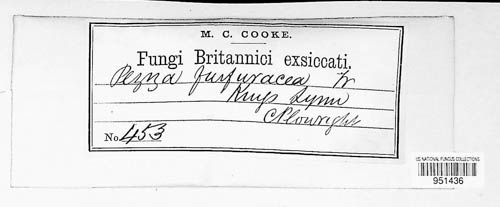 M. C. COOKE.
Fungi Britannici exsiccati.
Peziza furfuracea Fr
Kings Lynn
C Plowright
No. 453
US NATIONAL FUNGUS COLLECTIONS
951436